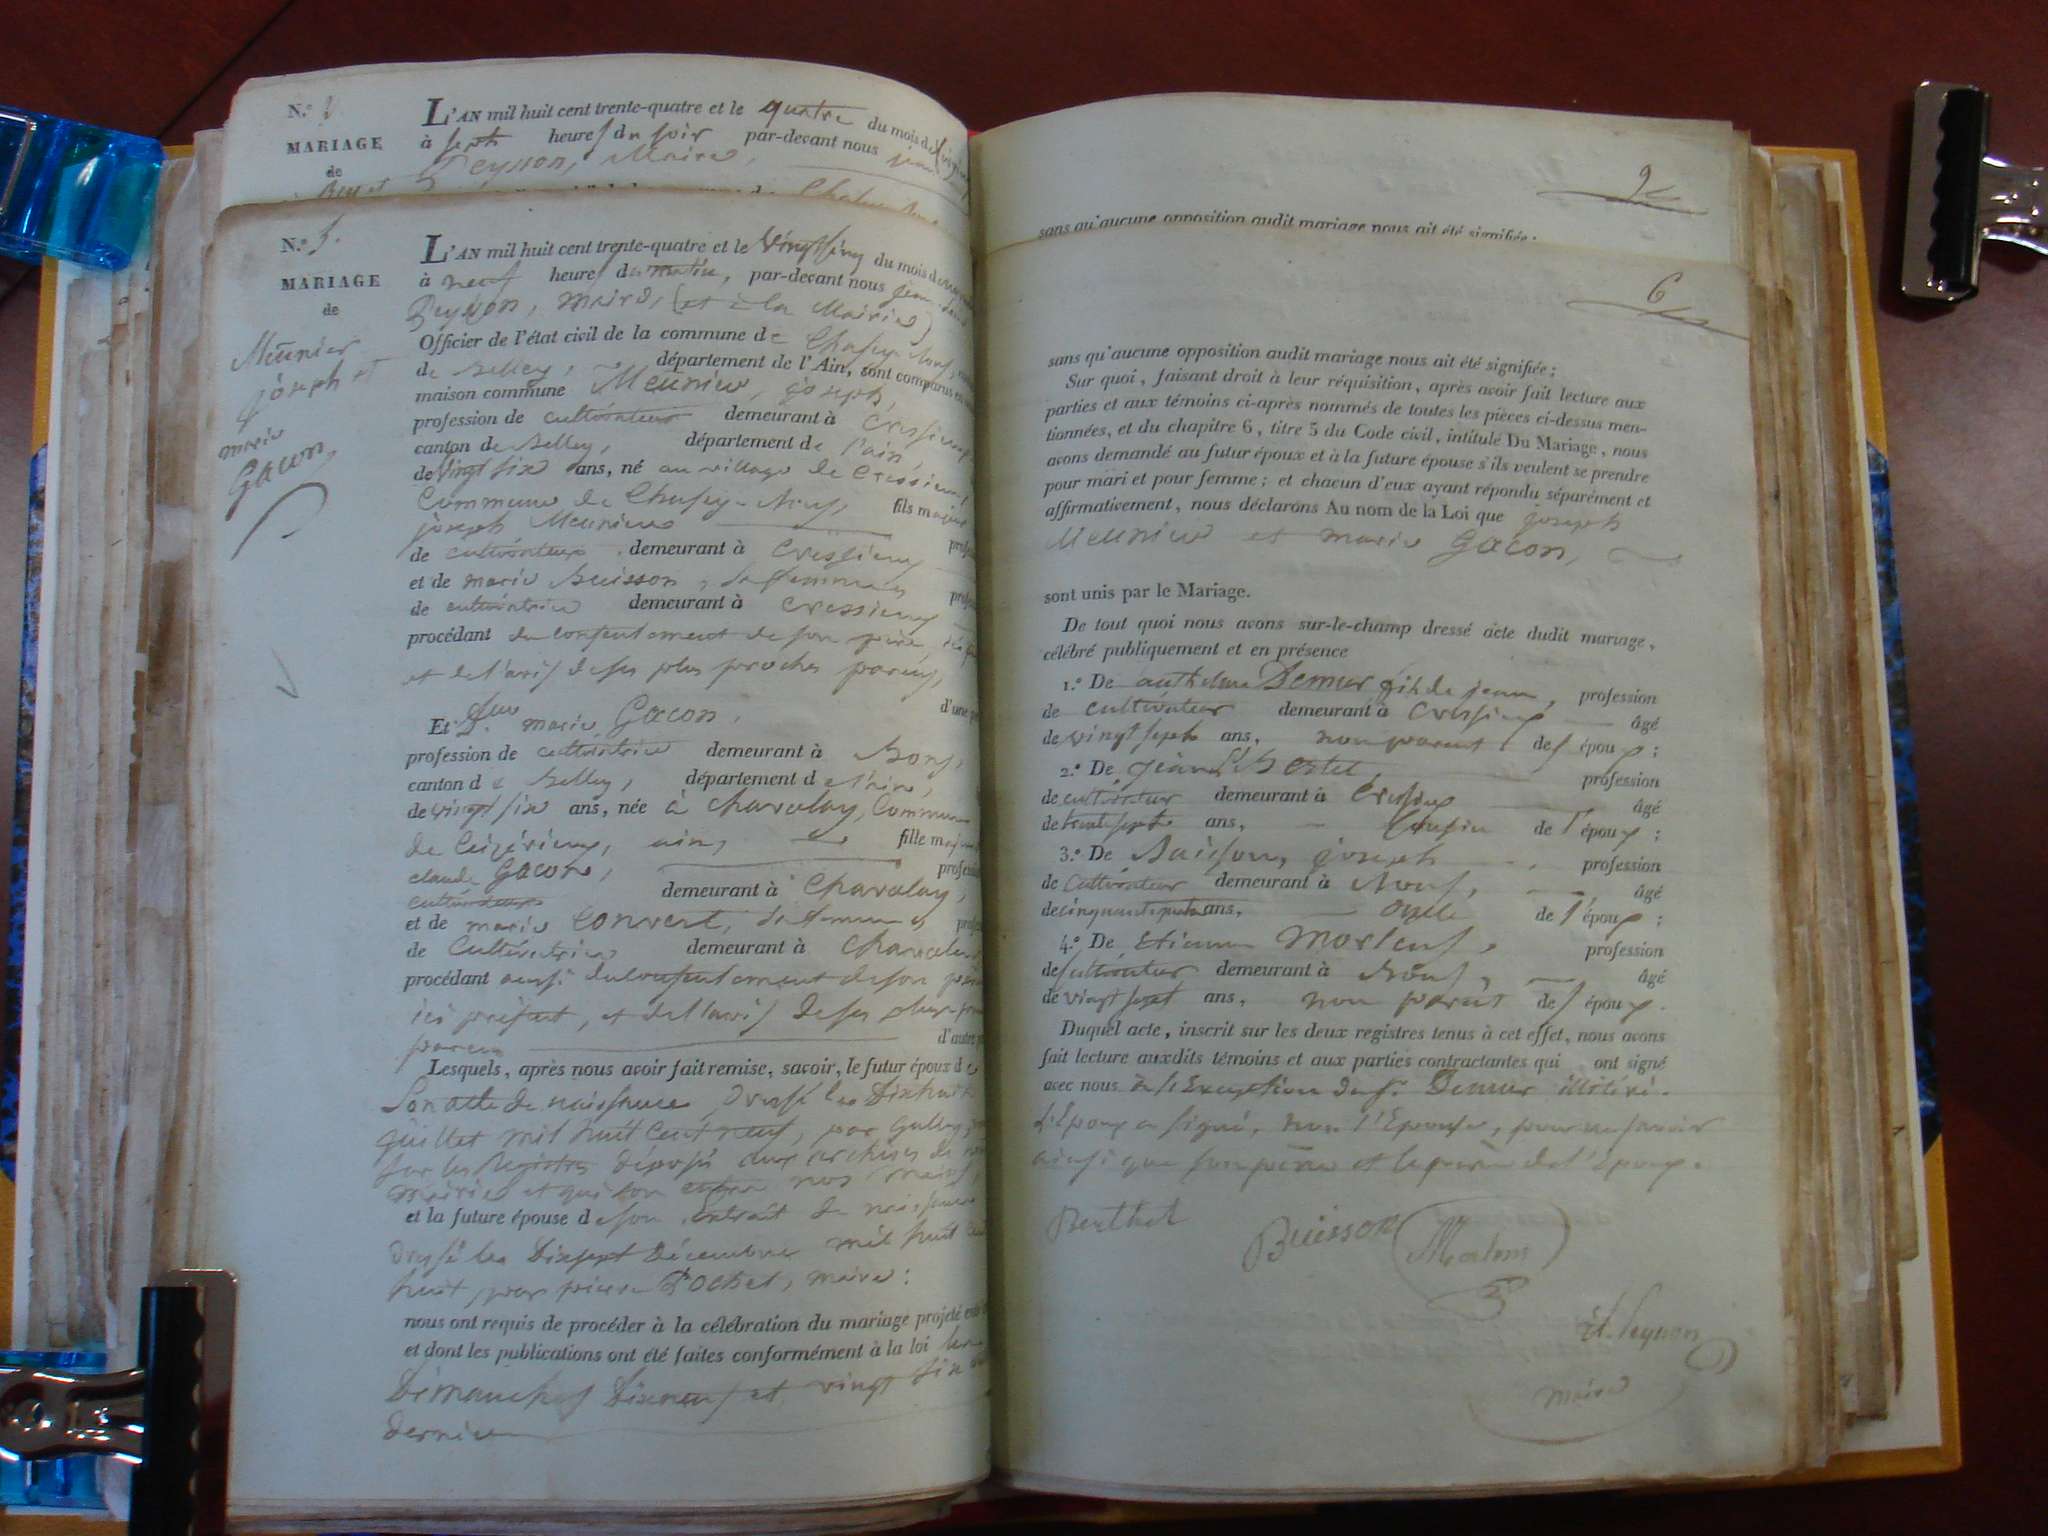 N.°
MARIAGE
de
L'AN mil huit cent trente-quatre et le quatre du mois de
à sept heures du soir par-devant nous jean
Peysson, Maire,
N.° 5.
MARIAGE
de
Meunier
joseph et
marie
Gacon,
L'AN mil huit cent trente-quatre et le vingt cinq du mois de
à neuf heures du matin, par-devant nous jean
Peysson, maire, (et à la Mairie)
Officier de l'état civil de la commune de Chazey-
de Belley, département de l'Ain, sont comparus
maison commune Meunier, joseph,
profession de cultivateur demeurant à Cressieux
canton de Belley, département de l'ain,
de vingt six ans, né au village de Cressieux
Commune de Chazey- fils majeur
joseph Meunier
de cultivateur demeurant à Cressieux
et de marie Buisson, sa femme
de cultivatrice demeurant à Cressieux
procédant du consentement de son père,
et de l'avis de ses plus proches parens,
Et D. marie Gacon,
d'une
profession de cultivatrice demeurant à Bons,
canton de Belley, département de l'ain,
de vingt six ans, née à Charvolay, Commune
de Ceizérieux, ain, fille
claude Gacon,
cultivateur demeurant à Charvolay,
et de marie Convert, sa femme
de Cultivatrice demeurant à
procédant aussi du consentement de son père
ici présent, et de l'avis de ses plus
parens
d'autre
Lesquels, après nous avoir fait remise, savoir, le futur époux de
Son acte de naissance, dressé le Dixhuit
mil huit Cent neuf, par
sur les Registres déposés aux archives de
mairie et qui sont entre nos mains,
et la future épouse de son extrait de naissance
dressé le Dixsept Décembre mil huit cent
huit, par pierre Pochet, maire:
nous ont requis de procéder à la célébration du mariage projeté
et dont les publications ont été faites conformément à la loi les
Dimanches Dixneuf et vingt six
dernier
2
sans qu'aucune opposition audit mariage nous ait été signifiée;
6
sans qu'aucune opposition audit mariage nous ait été signifiée;
Sur quoi, faisant droit à leur réquisition, après avoir fait lecture aux
parties et aux témoins ci-après nommés de toutes les pièces ci-dessus men-
tionnées, et du chapitre 6, titre 5 du Code civil, intitulé Du Mariage, nous
avons demandé au futur époux et à la future épouse s'ils veulent se prendre
pour mari et pour femme; et chacun d'eux ayant répondu séparément et
affirmativement, nous déclarons Au nom de la Loi que joseph
Meunier et marie Gacon,
sont unis par le Mariage.
De tout quoi nous avons sur-le-champ dressé acte dudit mariage,
célébré publiquement et en présence
1.° De anthelme Demur fils de jean, profession
de cultivateur demeurant à Cressieux âgé
de vingt sept ans, non parent des époux;
2.° De jean profession
de cultivateur demeurant à Cressieux âgé
de trente sept ans, Cousin de l'époux;
3.° De Buisson, joseph profession
de Cultivateur demeurant à âgé
de cinquante ans, oncle de l'époux;
4.° De Etienne profession
de cultivateur demeurant à âgé
de vingt sept ans, non parent des époux.
Duquel acte, inscrit sur les deux registres tenus à cet effet, nous avons
fait lecture auxdits témoins et aux parties contractantes qui ont signé
avec nous à l'Exception du S.r Demur illitéré.
L'Epoux a signé, non l'Epouse, pour ne savoir
ainsi que son père et le père de l'Epoux.
Berthet
Buisson
Peysson
maire